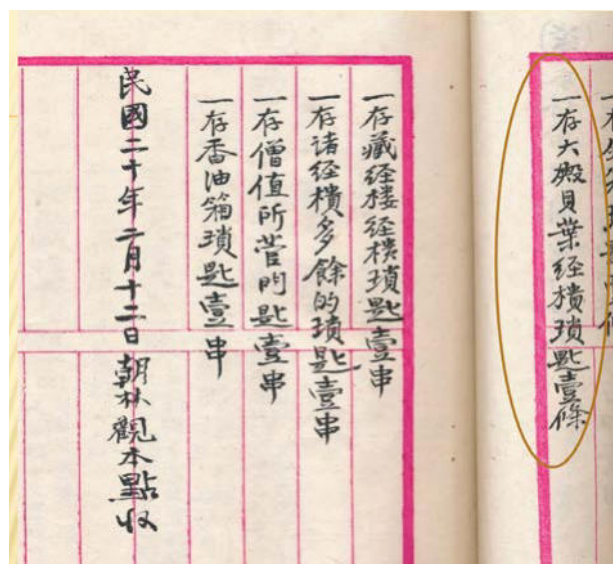 一存大殿貝葉經櫃瑣匙壹條
一存藏経楼経櫃瑣匙壹串
一存诸経櫃多餘的瑣匙壹串
一存僧值所管門匙壹串
一存香油箱瑣匙壹串
民國二十年二月十二日朝林觀本點收